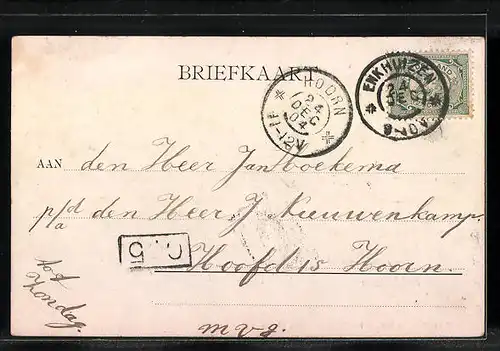 BRIEFKAART
HOORN
24
DEC
04
ENKHUIZEN
AAN den Heer Jan Boekema
p/a den Heer J. Nieuwenkamp.
Hoofd 15 Hoorn.
tot
Zondag.
m v g.